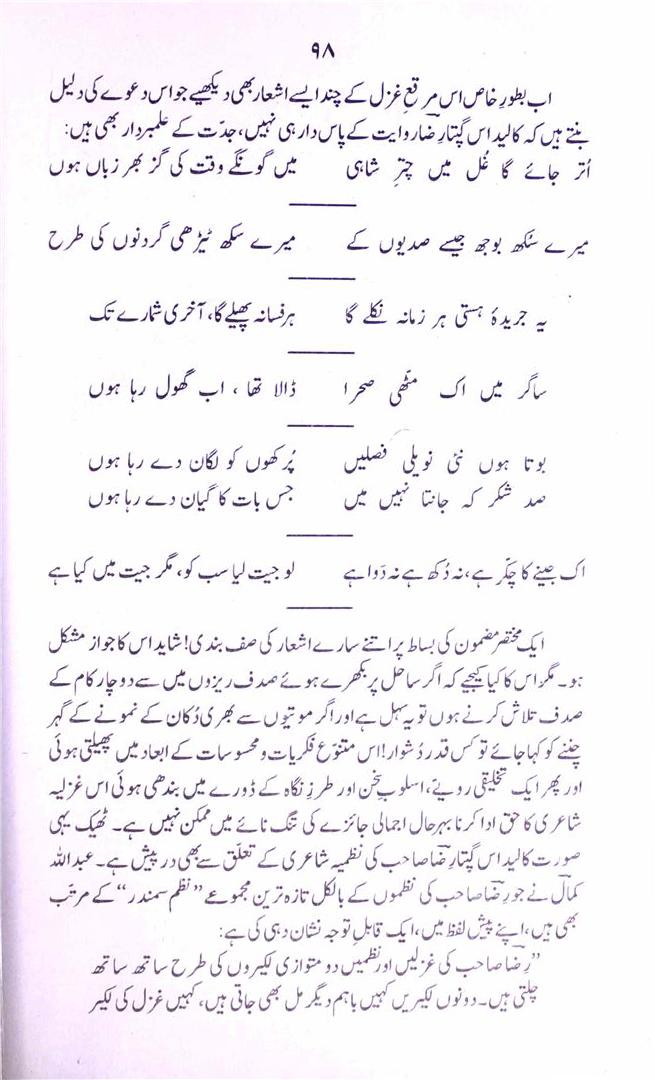 ۹۸
اب بطورِ خاص اس مرقعِ غزل کے چند ایسے اشعار بھی دیکھیے جو اس دعوے کی دلیل
بنتے ہیں کہ کالیداس گپتا رِضا روایت کے پاس دار ہی نہیں، جدّت کے علمبردار بھی ہیں:
اُتر جائے گا غُل میں چترِ شاہی میں گونگے وقت کی گز بھر زباں ہوں
میرے سُکھ بوجھ جیسے صدیوں کے میرے سکھ ٹیڑھی گردنوں کی طرح
یہ جریدۂ ہستی ہر زمانہ نکلے گا ہر فسانہ پھیلے گا، آخری شمارے تک
ساگر میں اک مٹّھی صحرا ڈالا تھا ، اب گھول رہا ہوں
بوتا ہوں نئی نویلی فصلیں پُرکھوں کو لگان دے رہا ہوں
صد شکر کہ جانتا نہیں میں جس بات کا گیان دے رہا ہوں
اک جینے کا چکّر ہے، نہ دُکھ ہے نہ دَوا ہے لو جیت لیا سب کو، مگر جیت میں کیا ہے
ایک مختصر مضمون کی بساط پر اتنے سارے اشعار کی صف بندی! شاید اس کا جواز مشکل
ہو۔ مگر اس کا کیا کیجیے کہ اگر ساحل پر بکھرے ہوئے صدف ریزوں میں سے دو چار کام کے
صدف تلاش کرنے ہوں تو یہ سہل ہے اور اگر موتیوں سے بھری دُکان کے نمونے کے گہر
چننے کو کہا جائے تو کس قدر دُشوار! اس متنوّع فکریات و محسوسات کے ابعاد میں پھیلتی ہوئی
اور پھر ایک تخلیقی رویتے، اسلوبِ سخن اور طرزِ نگاہ کے ڈورے میں بندھی ہوئی اس غزلیہ
شاعری کا حق ادا کرنا بہرحال اجمالی جائزے کی تنگ نائے میں ممکن نہیں ہے۔ ٹھیک یہی
صورت کالیداس گپتا رِضا صاحب کی نظمیہ شاعری کے تعلّق سے بھی درپیش ہے۔ عبداللہ
کمال نے جو رِضا صاحب کی نظموں کے بالکل تازہ ترین مجموعے ”نظم سمندر“ کے مرتب
بھی ہیں، اپنے پیش لفظ میں، ایک قابلِ توجہ نشان دہی کی ہے:
”رِضا صاحب کی غزلیں اور نظمیں دو متوازی لکیروں کی طرح ساتھ ساتھ
چلتی ہیں۔ دونوں لکیریں کہیں باہم دیگر مل بھی جاتی ہیں، کہیں غزل کی لکیر